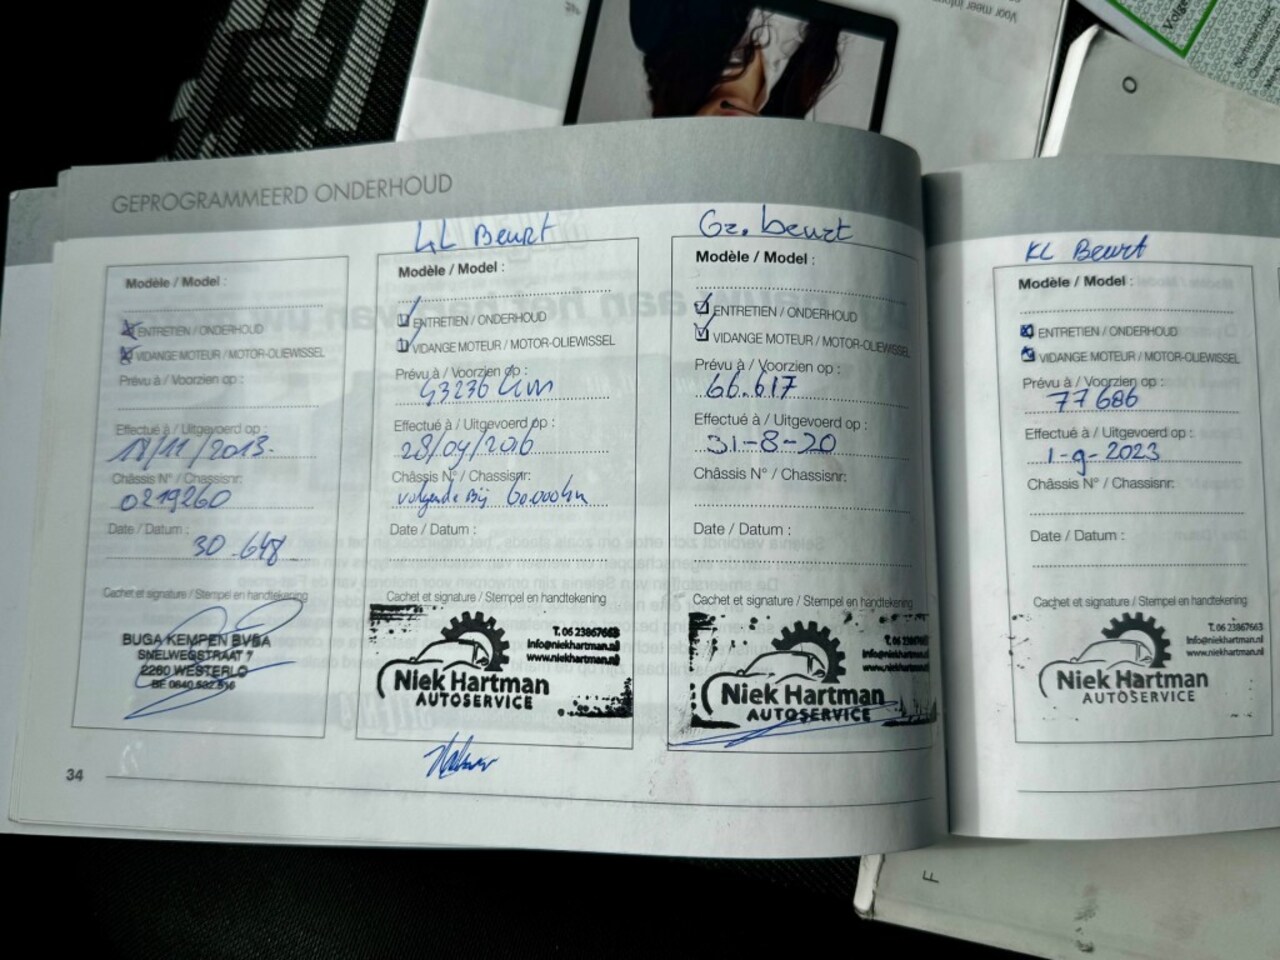 Voor meer inform
GEPROGRAMMEERD ONDERHOUD
Modèle / Model :
ENTRETIEN / ONDERHOUD
VIDANGE MOTEUR / MOTOR-OLIEWISSEL
Prévu à / Voorzien op :
Effectué à / Uitgevoerd op :
18/11/2013.
Châssis N° / Chassisnr:
0219260
Date / Datum :
30.648
Cachet et signature / Stempel en handtekening
BUGA KEMPEN BVBA
SNELWEGSTRAAT 7
2260 WESTERLO
34
KL Beurt
Modèle / Model :
ENTRETIEN / ONDERHOUD
VIDANGE MOTEUR / MOTOR-OLIEWISSEL
Prévu à / Voorzien op :
43236 km
Effectué à / Uitgevoerd op :
28/09/2016
Châssis N° / Chassisnr:
volgende Bij 60.000km
Date / Datum :
Cachet et signature / Stempel en handtekening
T. 06 23867663
info@niekhartman.nl
www.niekhartman.nl
Niek Hartman
AUTOSERVICE
Gr. beurt
Modèle / Model :
ENTRETIEN / ONDERHOUD
VIDANGE MOTEUR / MOTOR-OLIEWISSEL
Prévu à / Voorzien op :
66.617
Effectué à / Uitgevoerd op :
31-8-20
Châssis N° / Chassisnr:
Date / Datum :
Cachet et signature / Stempel en handtekening
T. 06 23867663
info@niekhartman.nl
www.niekhartman.nl
Niek Hartman
AUTOSERVICE
KL Beurt
Modèle / Model :
ENTRETIEN / ONDERHOUD
VIDANGE MOTEUR / MOTOR-OLIEWISSEL
Prévu à / Voorzien op :
77686
Effectué à / Uitgevoerd op :
1-9-2023
Châssis N° / Chassisnr:
Date / Datum :
Cachet et signature / Stempel en handtekening
T. 06 23867663
info@niekhartman.nl
www.niekhartman.nl
Niek Hartman
AUTOSERVICE